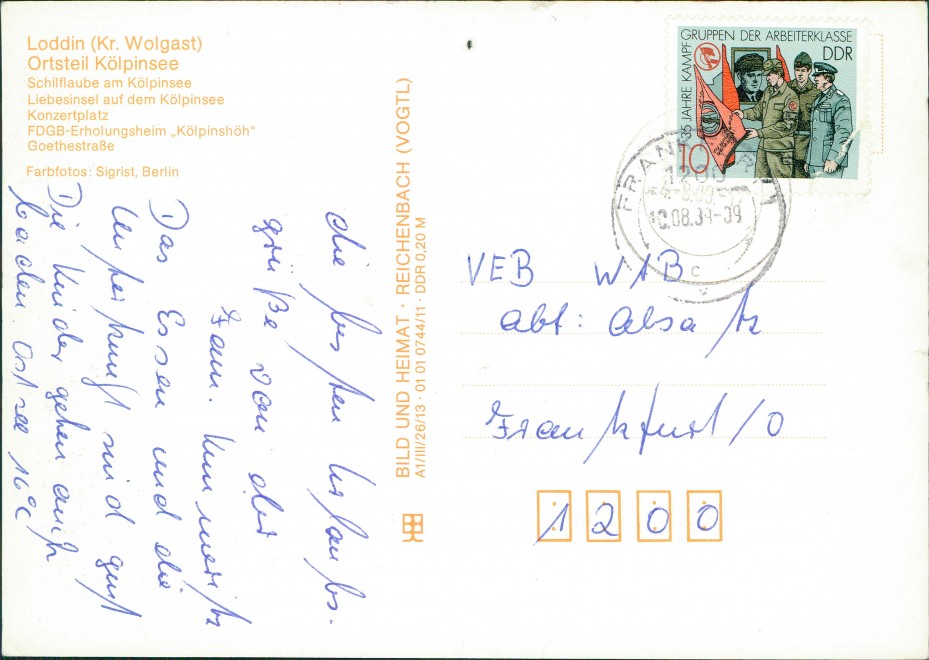 Loddin (Kr. Wolgast)
Ortsteil Kölpinsee
Schilflaube am Kölpinsee
Liebesinsel auf dem Kölpinsee
Konzertplatz
FDGB-Erholungsheim „Kölpinshöh"
Goethestraße
Farbfotos: Sigrist, Berlin
die besten Urlaubs-
grüße von der
Fam.
Das Essen und die
Unterkunft sind gut
Die Kinder gehen auch
baden Ostsee 16°C
BILD UND HEIMAT · REICHENBACH (VOGTL)
A1/III/26/13 · 01 01 0744/11 · DDR 0,20 M
35 JAHRE KAMPFGRUPPEN DER ARBEITERKLASSE
DDR
10
1200
10.08.89-09
c
VEB WAB
Abt: Absatz
Frankfurt/O
1200